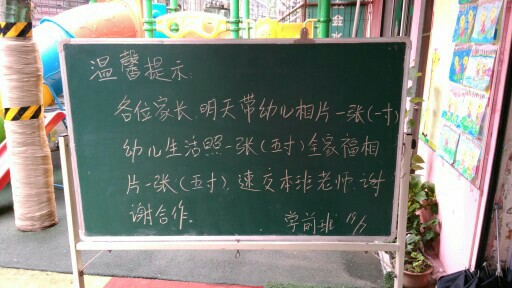 温馨提示:
各位家长,明天带幼儿相片一张(一寸)
幼儿生活照一张(五寸)全家福相
片一张(五寸),速交本班老师,谢
谢合作.
学前班